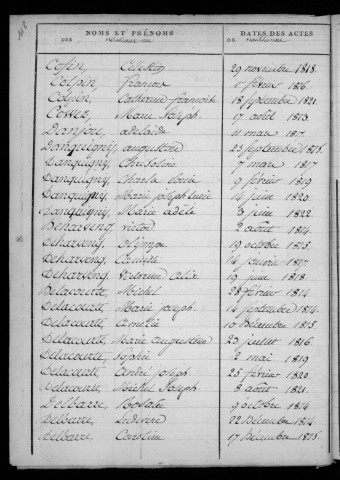 NOMS ET PRÉNOMS DATES DES ACTES
DES DE
Colpin, Célestin 29 novembre 1818.
Colpin, François 1er février 1816.
Colpin, Catherine françoise 18 Septembre 1821.
Marie Joseph 17 avril 1813.
Danjou, adélaïde 11 mars 1817.
Danquigny, augustine 23 Septembre 1815.
Danquigny, Christine 7 mars 1817
Danquigny, Charles Louis 9 février 1819.
Danquigny, Marie joseph 14 juin 1820.
Danquigny, Marie adèle 3 juin 1822.
Deharveng, victor 2 août 1814.
Deharveng, olympe 19 octobre 1815.
Deharveng, Camille 14 janvier 1817.
Deharveng, alix 19 juin 1818.
Delacourte, Michel 28 février 1814.
Delacourte, Marie joseph 14 septembre 1814.
Delacourte, Amélie 10 Décembre 1815.
Delacourte, Marie augustine 23 juillet 1816.
Delacourte, Sophie 2 mai 1819
Delacourte, André joseph 25 février 1820.
Delacourte, Michel Joseph 8 août 1821.
Delbarre, Rosalie 9 octobre 1814
Delbarre, Ludivine 22 Décembre 1814
Delbarre, Caroline 17 Décembre 1815.